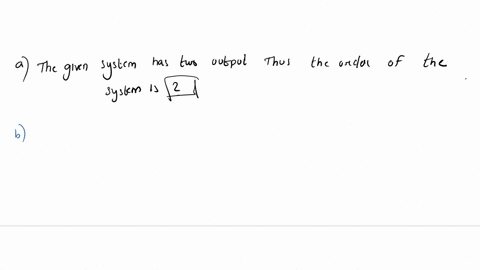 a) The given system has two output Thus the order of the
system is 2
b)